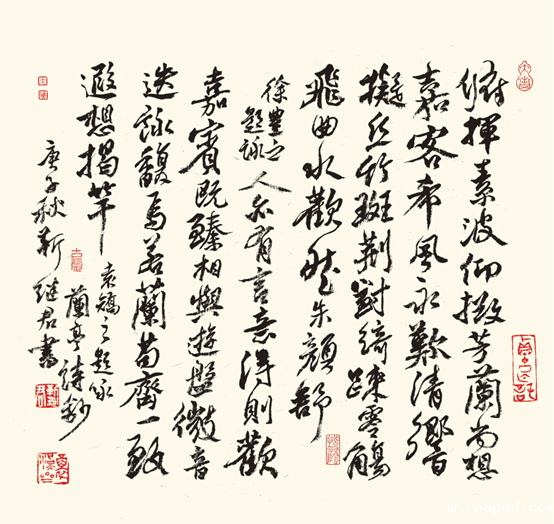 俯揮素波仰掇芳蘭尚想
嘉客希風永歎清響
擬丝竹斑荆對綺疎零觴
飛曲水歡然朱顏舒
徐豊之題詠
人亦有言意得則歡
嘉賓既臻相與遊盤微音
迭詠馥焉若蘭苟齊一致
遐想揭竿
袁矯之題詠
蘭亭詩鈔
庚子秋靳继君書